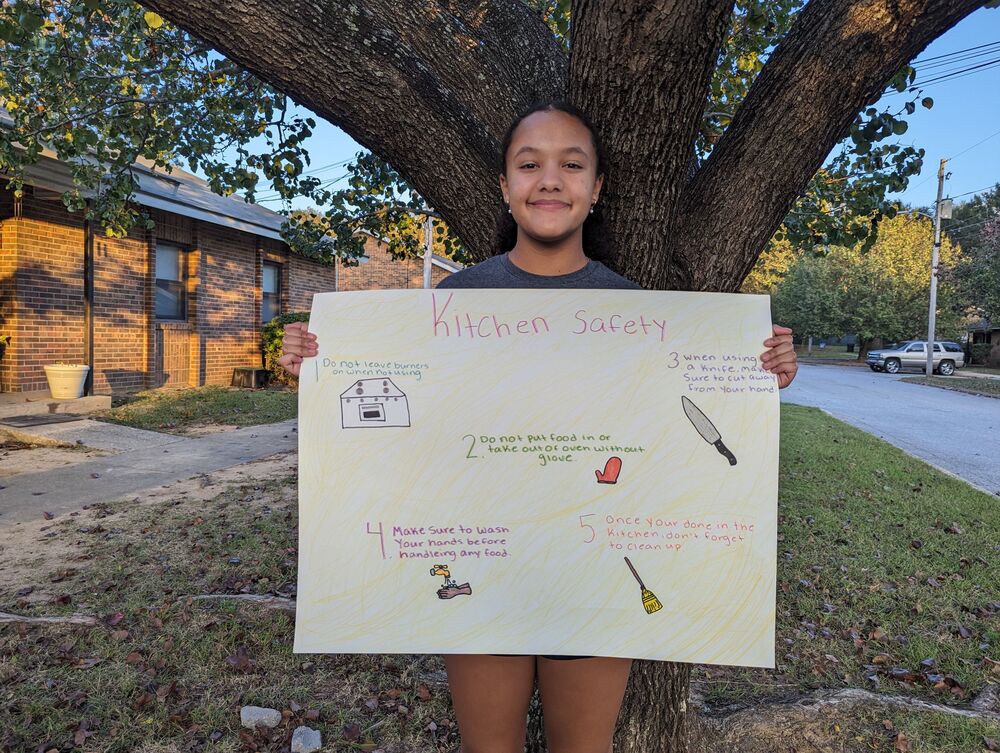 Kitchen Safety
1 Do not leave burners
on when not using.
3 When using
a knife, make
Sure to cut away
from your hand.
2. Do not put food in or
take out of oven without
glove.
4. Make Sure to wash
Your hands before
handleing any food.
5 Once your done in the
Kitchen, don't forget
to clean up.